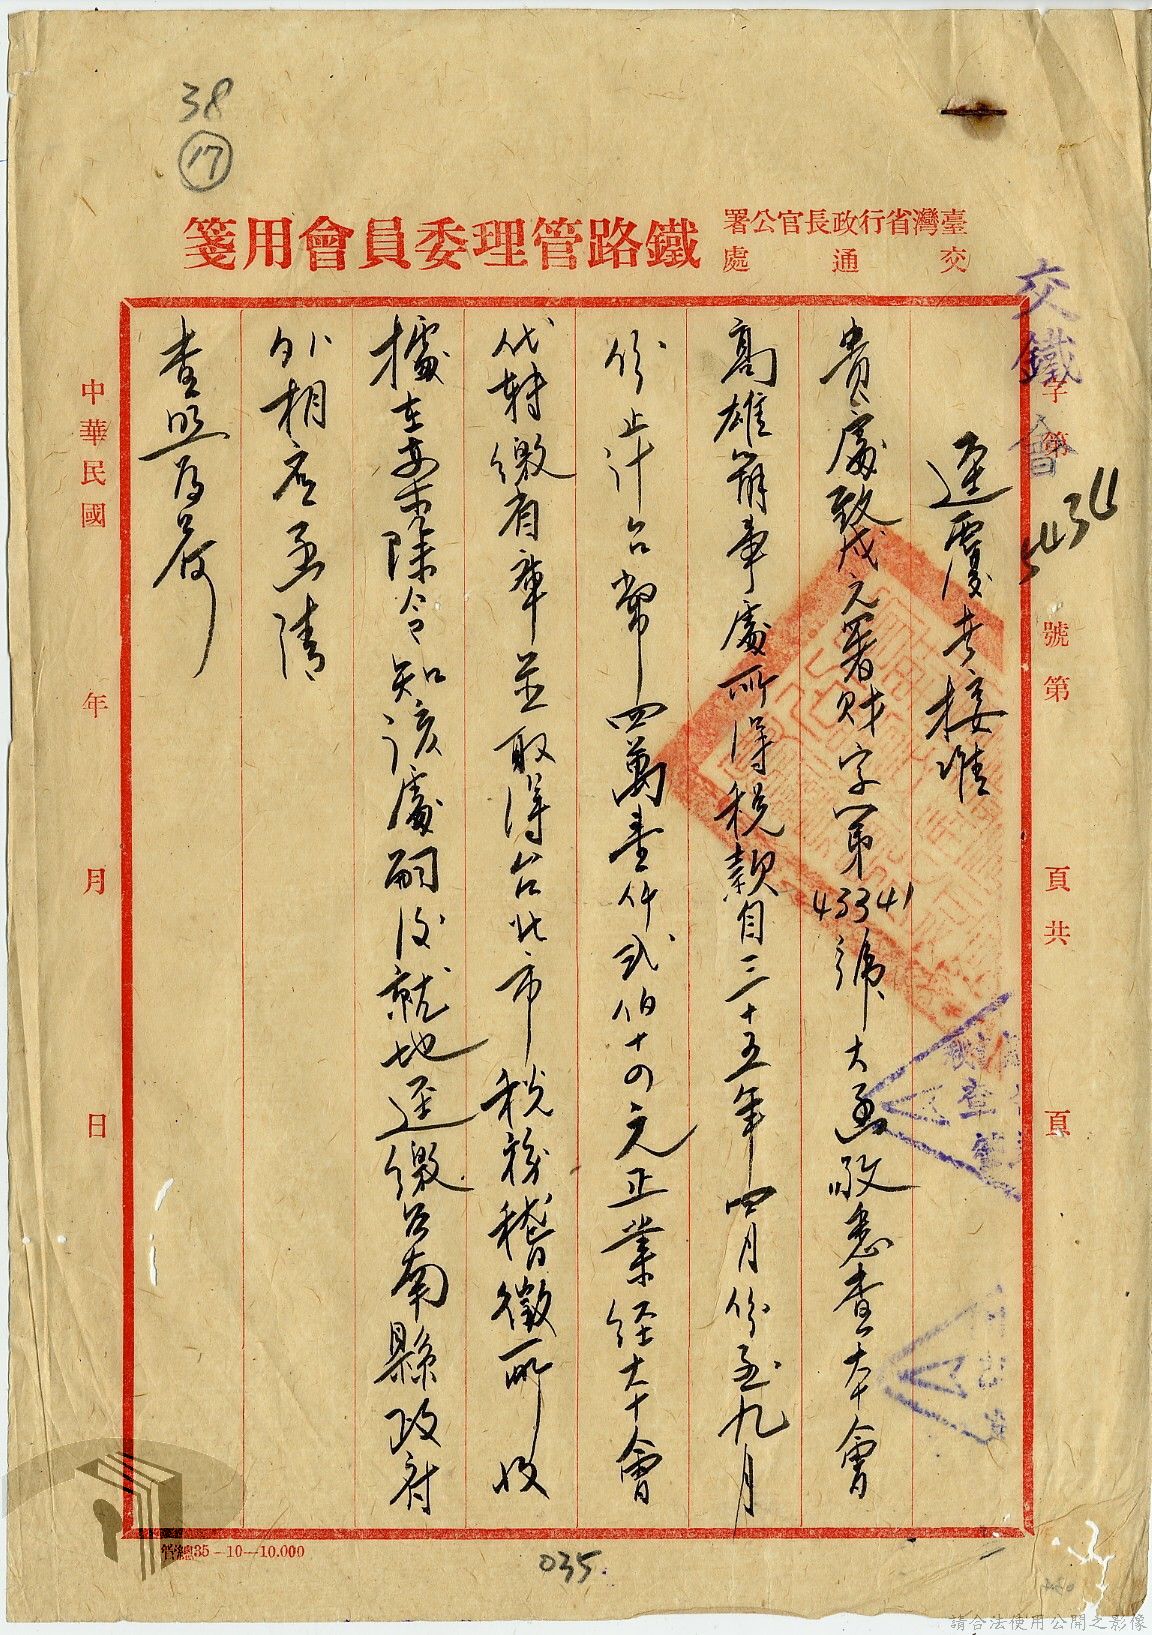 38
17
臺灣省行政長官公署
交通處
鐵路管理委員會用箋
交鐵會
字第
5434
號第
頁共
頁
逕覆者接准
貴處致戌元署財字第43341號大函敬悉查本會
高雄辦事處所得稅款自三十五年四月份至九月
份止計台幣四萬壹仟弍佰十四元正業經本會
代轉繳省庫並取得台北市稅務稽徵所收
據在案除令知該處嗣後就地逕繳台南縣政府
外相應函請
查照為荷
中華民國
年
月
日
管總35-10-10.000
035.
請合法使用公開之影像